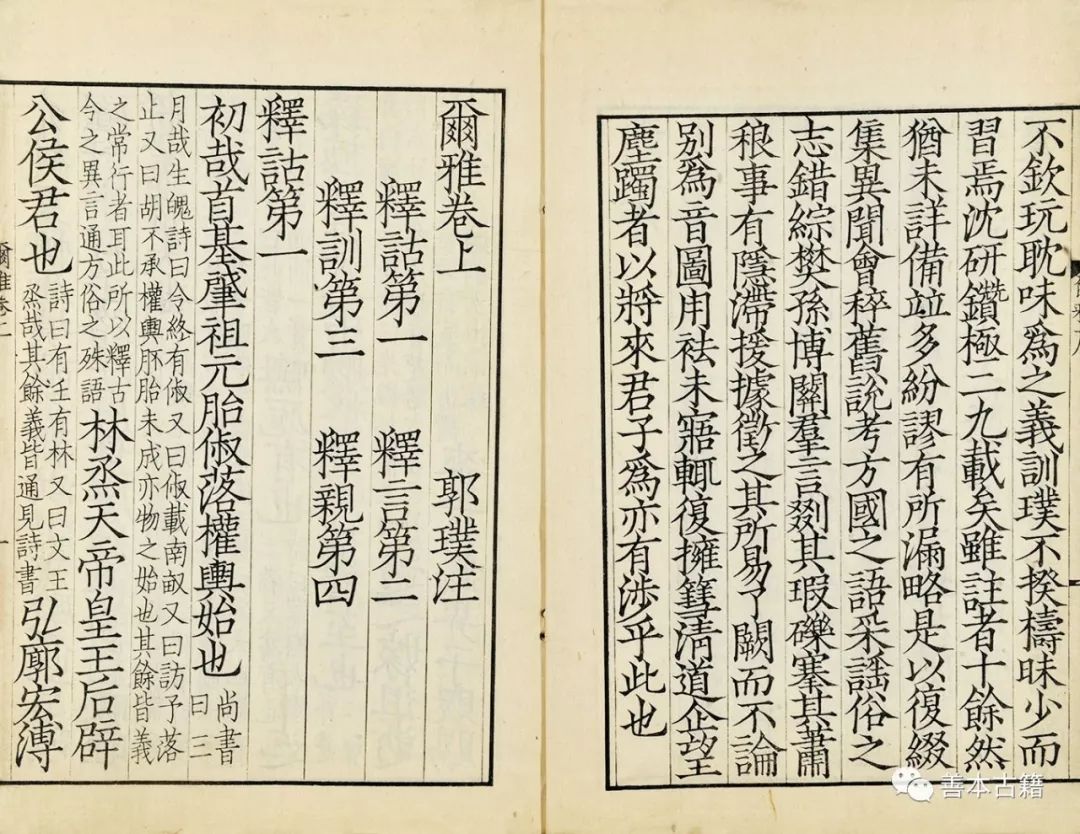 不欽玩耽味爲之義訓璞不揆檮昧少而
習焉沈研鑽極二九載矣雖註者十餘然
猶未詳備竝多紛謬有所漏略是以復綴
集異聞會稡舊說考方國之語采謠俗之
志錯綜樊孫博關羣言剟其瑕礫塞其蕭
稂事有隱滯援據徵之其所易了闕而不論
別爲音圖用祛未寤輒復擁篲淸道企望
塵躅者以將來君子爲亦有涉乎此也
爾雅卷上 郭璞注
釋詁第一 釋言第二
釋訓第三 釋親第四
釋詁第一
初哉首基肇祖元胎俶落權輿始也 尚書
曰三
月哉生魄詩曰令終有俶又曰俶載南畝又曰訪予落
止又曰胡不承權輿胚胎未成亦物之始也其餘皆義
之常行者耳此所以釋古
今之異言通方俗之殊語
林烝天帝皇王后辟
公侯君也
詩曰有壬有林又曰文王
烝哉其餘義皆通見詩書
弘廓宏溥
善本古籍